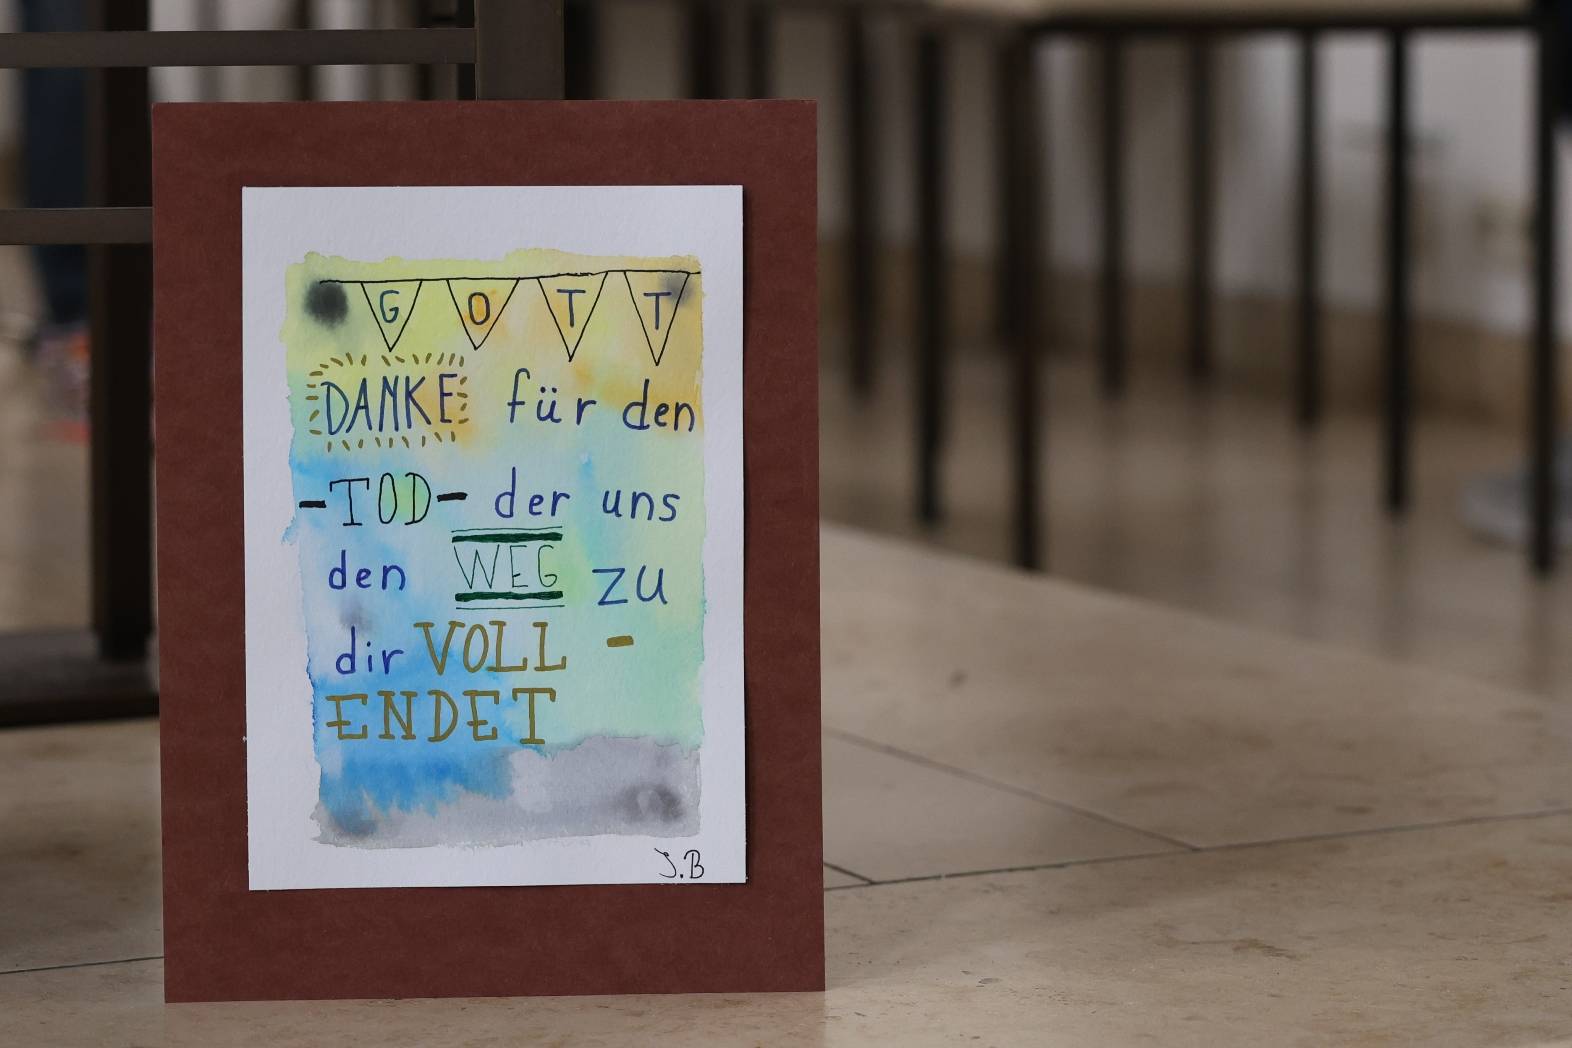 GOTT
DANKE für den
-TOD- der uns
den WEG zu
dir VOLL-
ENDET
J.B